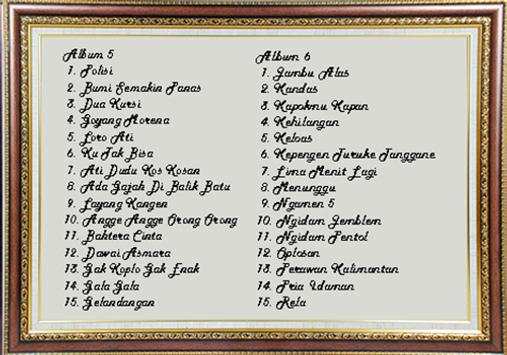 Album 5
1. Polisi
2. Bumi Semakin Panas
3. Dua Kursi
4. Goyang Morena
5. Loro Ati
6. Ku Tak Bisa
7. Ati Dudu Kos Kosan
8. Ada Gajah Di Balik Batu
9. Layang Kangen
10. Angge Angge Orong Orong
11. Bahtera Cinta
12. Dawai Asmara
13. Gak Koplo Gak Enak
14. Gala Gala
15. Gelandangan
Album 6
1. Jambu Alas
2. Kandas
3. Kapokmu Kapan
4. Kehilangan
5. Keloas
6. Kepengen Turuke Tanggane
7. Lima Menit Lagi
8. Menunggu
9. Ngamen 5
10. Ngidam Jemblem
11. Ngidam Pentol
12. Oplosan
13. Perawan Kalimantan
14. Pria Idaman
15. Rela